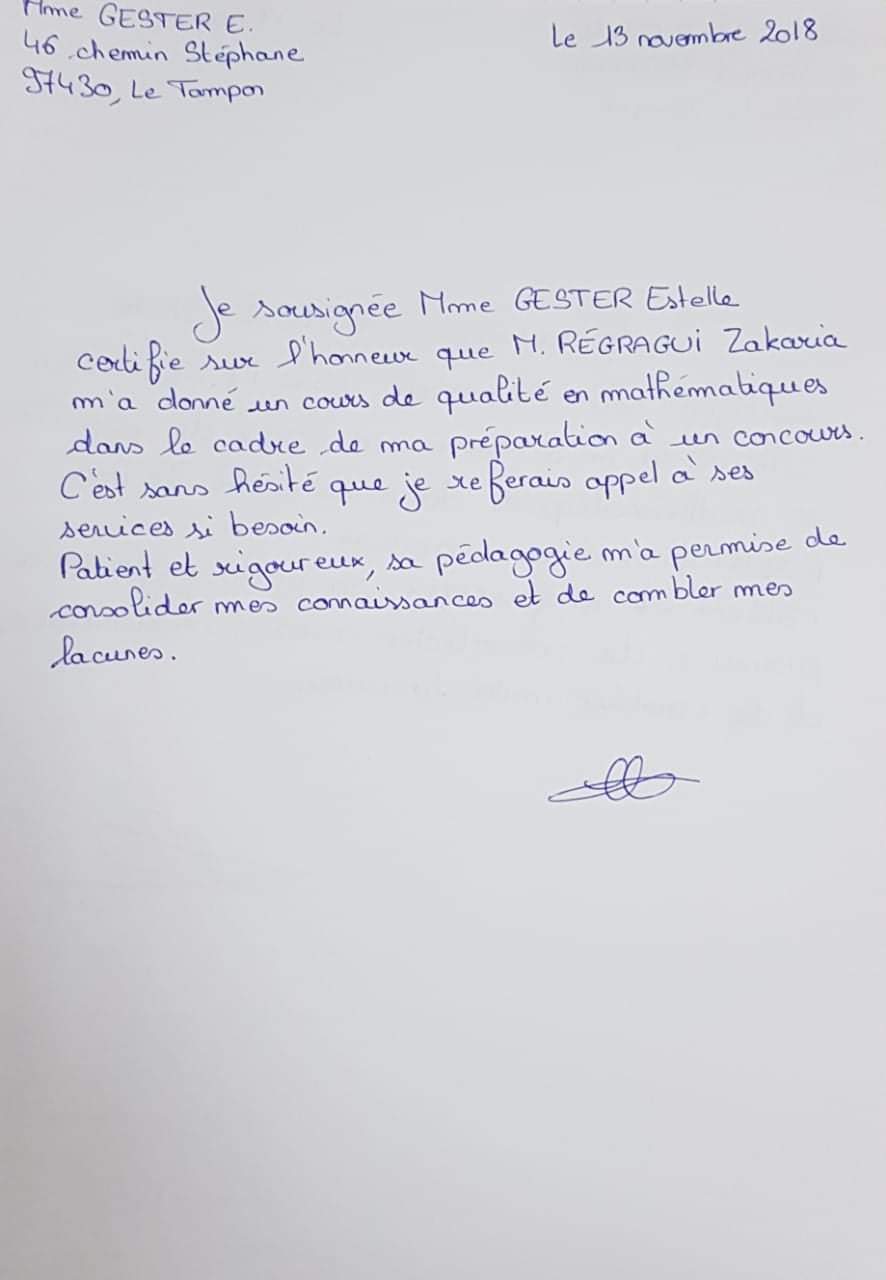 Mme GESTER E.
Le 13 novembre 2018
46 chemin Stéphane
97430, Le Tampon
Je sousignée Mme GESTER Estelle
certifie sur l'honneur que M. RÉGRAGUI Zakaria
m'a donné un cours de qualité en mathématiques
dans le cadre de ma préparation à un concours.
C'est sans hésité que je referais appel à ses
services si besoin.
Patient et rigoureux, sa pédagogie m'a permise de
consolider mes connaissances et de combler mes
lacunes.